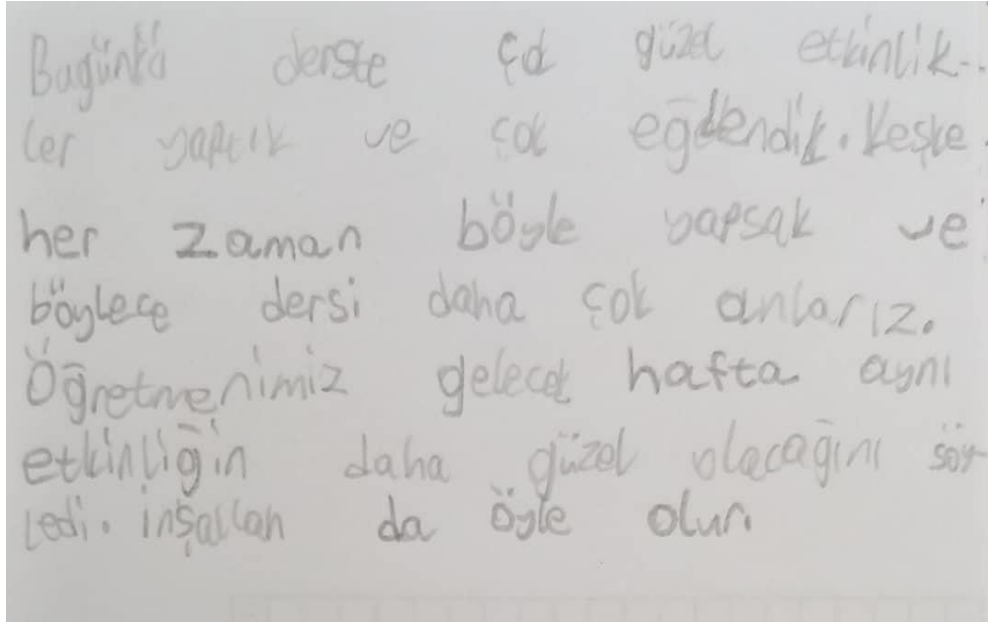 Bugünkü derste çok güzel etkinlik-
ler yaptık ve çok eğlendik. Keşke
her zaman böyle yapsak ve
böylece dersi daha çok anlarız.
Öğretmenimiz gelecek hafta aynı
etkinliğin daha güzel olacağını söy
ledi. inşallah da öyle olur.